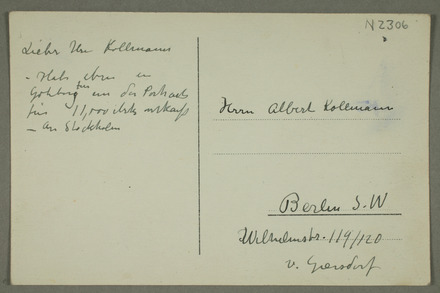 N 2306
Lieber Herr Kollmann
- Habe eben in
für
für 11,000 verkauft
- An Stockholm
Herrn Albert Kollmann
Berlin S.W
Wilhelmstr. 119/120
v. Gersdorf